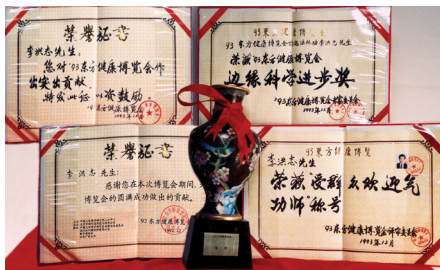 荣誉证书
李洪志先生:
您对'93东方健康博览会作
出突出贡献,
特发此证以资鼓励。
'93东方健康博览会
1993.12
93东方健康博览会
'93东方健康博览会 李洪志先生
荣获'93东方健康博览会
边缘科学进步奖
'93东方健康博览会评审委员会
1993年12月
荣誉证书
李洪志先生:
感谢您在本次博览会期间,
博览会的圆满成功做出的贡献。
'93东方健康博览
93东方健康博览
李洪志先生
荣获受群众欢迎气
功师称号
'93东方健康博览会评审委员会
1993年12月